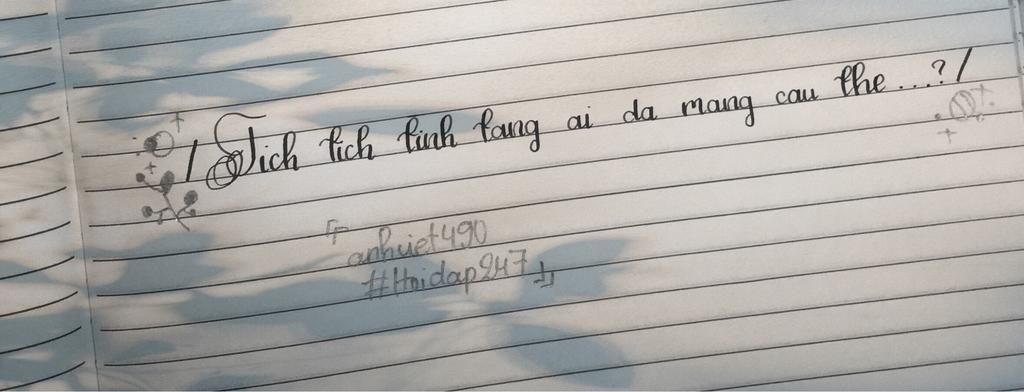 / Tich tich tinh tang ai da mang cau the...? /
『anhviet490
#Hoidap247』